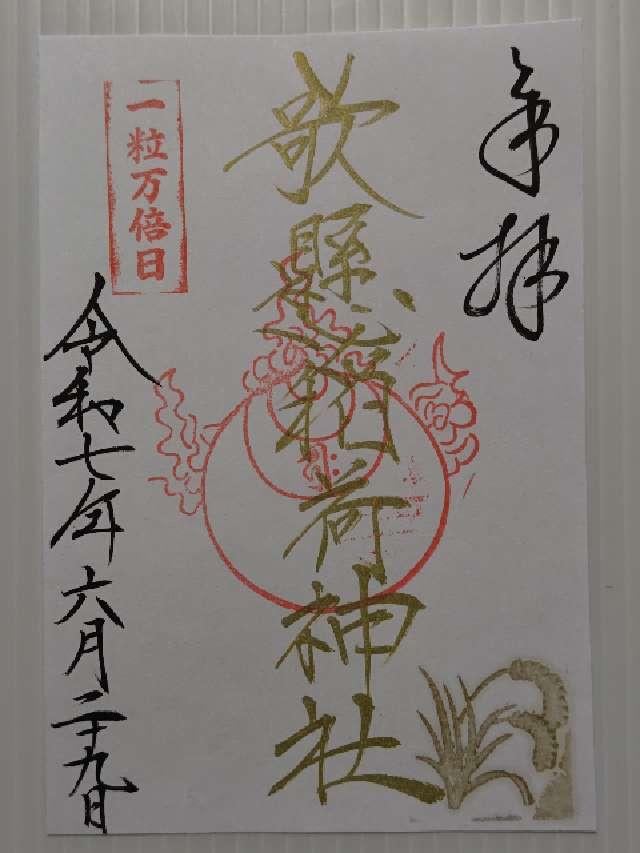 奉拝
歌懸稲荷神社
一粒万倍日
令和七年六月二十九日